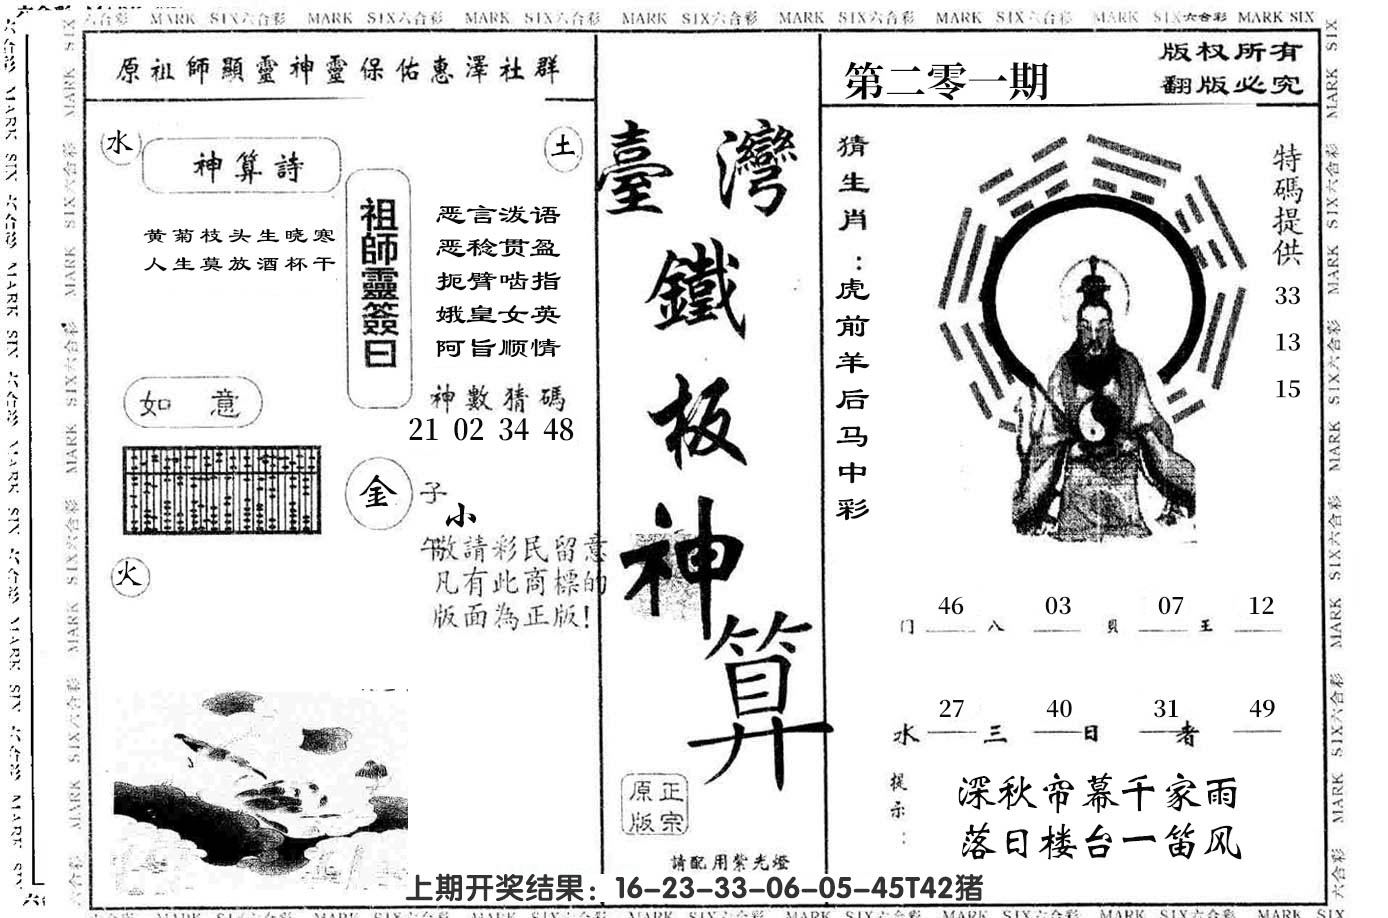 六合彩 MARK SIX六合彩 MARK SIX六合彩 MARK SIX六合彩 MARK SIX六合彩 MARK SIX六合彩 MARK SIX六合彩 MARK SIX六合彩 MARK SIX
原祖師顯靈神靈保佑惠澤社群
水
神算詩
土
黄菊枝头生晓寒
人生莫放酒杯干
祖師靈簽曰
恶言泼语
恶稔贯盈
扼臂啮指
娥皇女英
阿旨顺情
神數猜碼
21 02 34 48
如意
金
子
小
午
敬請彩民留意
凡有此商標的
版面為正版!
火
臺灣
鐵
板
神
算
正宗
原版
請配用紫光燈
第二零一期
版权所有
翻版必究
猜生肖:虎前羊后马中彩
特碼提供
33
13
15
46 03 07 12
门 八 貝 王
27 40 31 49
水 三 日 者
提示:
深秋帘幕千家雨
落日楼台一笛风
上期开奖结果：16-23-33-06-05-45T42猪